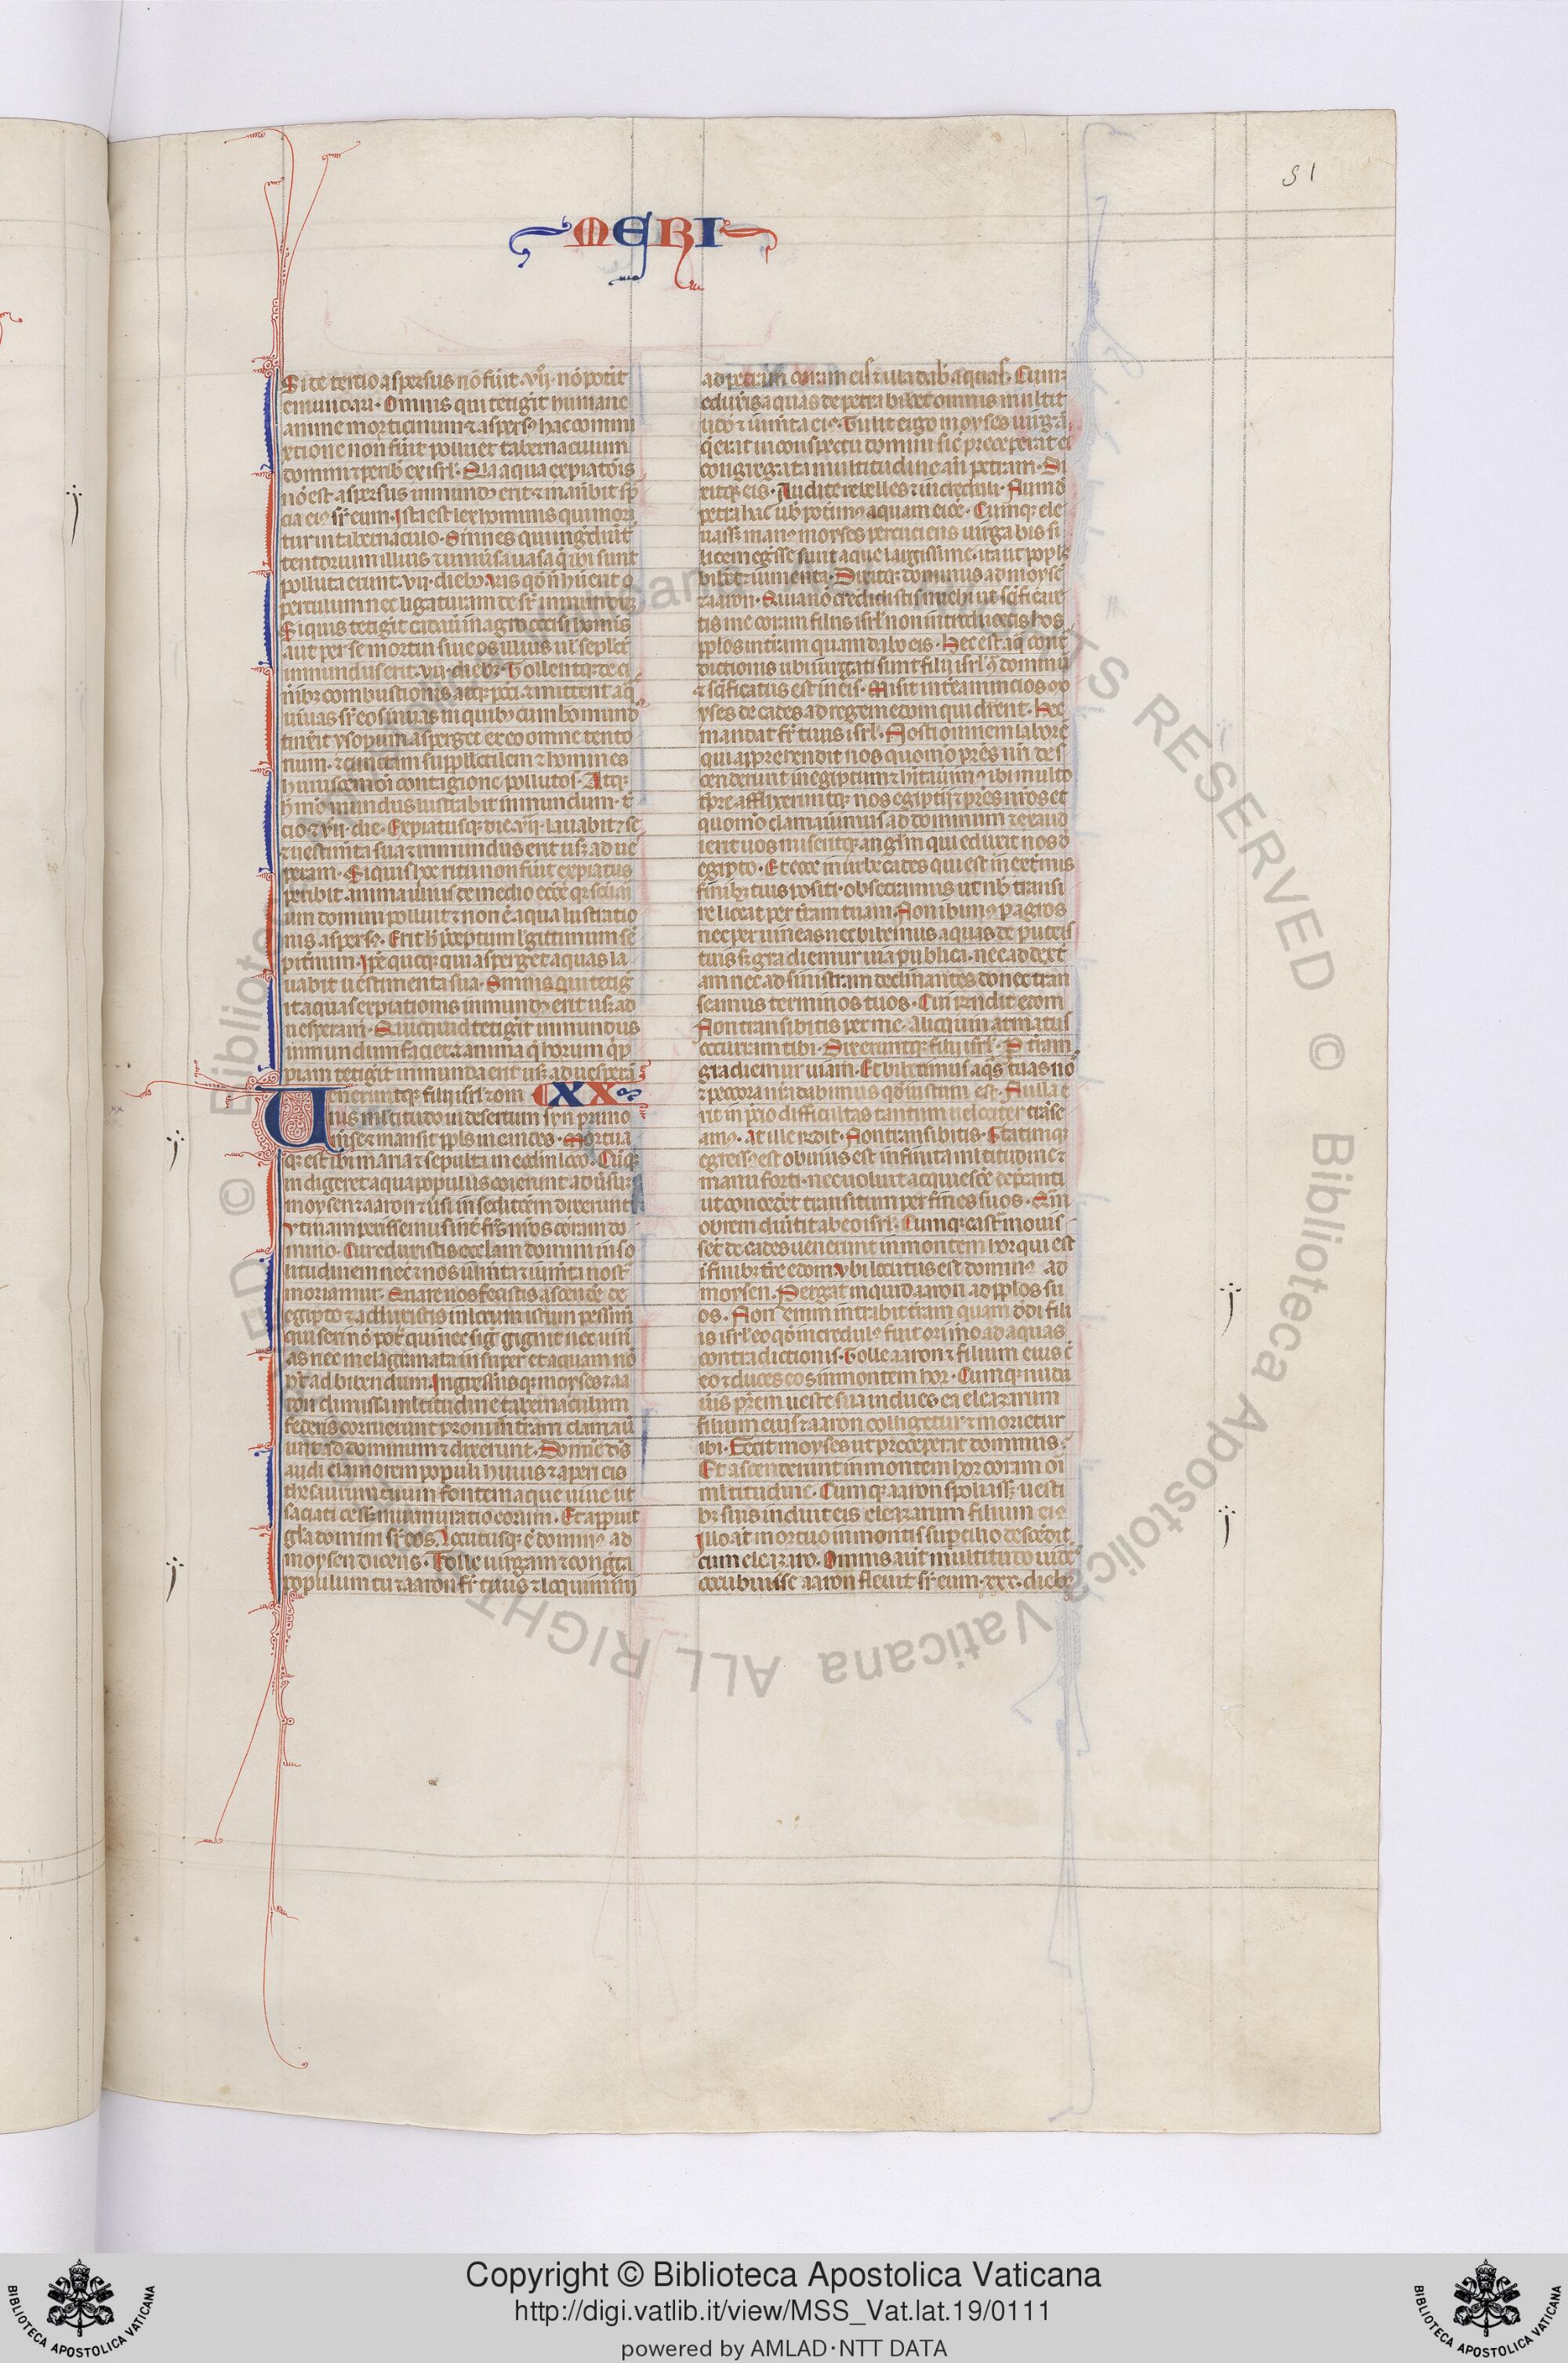 51
MERI
Si die tercio aspersus nō fūit · vij · nō potīt
emundari · Omnis qui tetigīt humane
anime morticinum ⁊ aspersꝰ hac commi
xtione non fūit polluet tabernaculum
domini ⁊ peribꝫ ex isrl̄ · Q̇ia aqua expiatōis
nō est aspersus inmundꝰ erit ⁊ manebit sp̄
cia eiꝰ sr̄ eum · Ista est lex hominis qui mori
tur in tabernaculo · Omnes qui ingrediūt̄
tentorium illius ⁊ uniūsa uasa q̄ ibi sunt
polluta erunt · vij · diebꝫ Vas qd̄ n̄ hūerit o
perculum nec ligaturam desr̄ inmundū ē
Si quis tetigīt cadaū in agro occisi hominis
aut per se mortui siue os illius ul̄ seplc̄r
inmundus erit · vij · diebꝫ · Tollentqꝫ de ci
nibꝫ combustionis atqꝫ pccī · ⁊ mittent aq̄s
uiuas sr̄ eos in uas in quibꝫ cum homo mund
tinx̄it ysopum asperget ex eo omne tento
rium · ⁊ cunctam suppllectilem ⁊ homines
huiuscemōi contagione pollutos · Atqꝫ
h̄ mō mundus lustrabit inmundum · t̄
cio ⁊ vij · die · Expiatusqꝫ die · vij · lauabit ⁊ se
⁊ uestimta sua ⁊ inmundus erit usqꝫ ad ues
peram · Si quis hoc ritu non fūit expiatus
peribit anima illius de medio ecc̄e qꝛ sc̄uai
um domini polluit ⁊ non ē aqua lustratio
nis aspersꝰ · Erit h̄ p̄ceptum lgittimum sē
pitnum · Ipē quoqꝫ qui asperget aquas la
uabit uestimenta sua · Omnis qui tetig
it aquas expiationis inmundꝰ erit usqꝫ ad
uesperam · Quicquid tetigīt inmundus
inmundum faciet · ⁊ anima q̄ horum qp̄
piam tetigīt inmunda erit usqꝫ ad uesperā
Venerūntqꝫ filij isrl̄ ⁊ om XX
nis multitudo in desertum syn primo
mēse ⁊ mansit ppls̄ in cades · Mortua
qꝫ est ibi maria ⁊ sepulta in eodem loco · Cūqꝫ
indigeret aqua populus coierunt ad ūsuꝫ
moysen ⁊ aaron ⁊ ūsi in seditōem dixerunt
Vtinam perissemus int̄ frs̄ nr̄os coram do
mino · Cur eduxistis ecclam domini in so
litudinem nec̄ ⁊ nos uiuīta ⁊ iumta nostr̄
moriamur · Quare nos fecistis ascende de
egipto ⁊ adduxistis in locum istum pessimū
qui seri nō pot̄ qui nec sig gignit nec uin
as nec malagranata insuper et aquam nō
hꝫ ad bibendum · Ingressusqꝫ moyses ⁊ aa
ron dimissa mltitudine tabernaculum
federis corruerunt proni in tram clamaū
untqꝫ ad dominum ⁊ dixerunt · Domine ds̄
audi clamorem populi huius ⁊ aperi eis
thesaurum tuum fontem aque uiue ut
saciati cesset murmuratio eorum · Et appuit
gla domini sr̄ eos · locutusqꝫ ē dominꝰ ad
moysen dicens · Tolle uirgam ⁊ congga
populum tu ⁊ aaron fr̄ tuus ⁊ loquimini
ad petram coram eis ⁊ illa dabit aquas · Cumqꝫ
eduxis aquas de petra bibet omnis multit
udo ⁊ iumta eiꝰ · Tulit ergo moyses uirgā
q̄ erat in conspectu domini sic preceperat ei
congregata multitudine añ petram · Di
xitqꝫ eis · Audite rebelles ⁊ increduli · Num d
petra hac uob̄ potimꝰ aquam eice · Cumqꝫ ele
uasset manꝰ moyses percuciens uirga bis si
licem egsse sunt aque largissime · ita ut poplꝰ
bibet ⁊ iumenta · Dixitqꝫ dominus ad moysē
⁊ aaron · Quia nō credidistis michi ut scificare
tis me coram filiis isrl̄ non introducetis hos
pplos in tram quam dabo eis · Hec est aq̄ cont
dictionis ubi iurgati sunt filij isrl̄ ꝯ dominū
⁊ scificatus est in eis · Misit intea nuncios mo
yses de cades ad regem edom qui dicent · Hec
mandat fr̄ tuus isrl̄ · Nosti omnem laborē
qui apprehendit nos quomō prēs nri des
cenderunt in egiptum ⁊ hitauimꝰ ibi multo
tpre afflixeruntqꝫ nos egiptij ⁊ prēs nros et
quomō clamauimus ad dominum ⁊ exaud
ierit nos misertqꝫ anglm qui eduxit nos d
egipto · Et ecce in urbe cades qui est in extmis
finibꝫ tuis positi · obsecramus ut nob̄ transi
re liceat per tram tuam · Non ibimꝰ p agros
nec per uineas nec bibemus aquas de puteis
tuis sꝫ gradiemur uia publica · nec ad dext
am nec ad sinistram declinantes donec tran
seamus terminos tuos · Cui rndit edom
Non transibitis per me · alioquin armatus
occurram tibi · Dixeruntqꝫ filij isrl̄ · P tritam
gradiemur uiam · Et si bibimus aqs tuas nō
⁊ peccora nra dabimus qd̄ iustum est · Nulla e
rit in p̄cio difficultas tantum uelociter trāse
amꝰ · At ille rndit · Non transibitis · Statimqꝫ
egressꝰ est obuius est infinita mltitudine ⁊
manu forti · nec uoluit acquiescē deprecanti
ut concedet transitum per fines suos · Qm̄
obrem diūtit ab eo isrl̄ · Cumqꝫ castr mouis
set de cades uenerunt in montem hor qui est
i finibꝫ tre edom Vbi locutus est dominꝰ ad
moysen · Pergat inquid aaron ad pplos su
os · Non enim intrabit tram quam dedi fili
is isrl̄ eo qd̄ incredulꝰ fuit ori mō ad aquas
contradictionis · Tolle aaron ⁊ filium eius c̄
eo ⁊ duces eos in montem hor · Cumqꝫ nuda
uis prem ueste sua indues ea eleazarum
filium eius ⁊ aaron colligetur ⁊ morietur
ibi · Fecit moyses ut preceperat dominus ·
Et ascenderunt in montem hor coram oi
mltitudine · Cumqꝫ aaron spoliasset uesti
bꝫ suis induit eis eleazarum filium eiꝰ
Illo aūt mortuo in montis supcilio descēdit
cum eleazaro · Omnis aūt multitudo uidēs
occubuisse aaron fleuit sr̄ eum · xxx · diebꝫ
Copyright © Biblioteca Apostolica Vaticana
http://digi.vatlib.it/view/MSS_Vat.lat.19/0111
powered by AMLAD·NTT DATA
BIBLIOTECA APOSTOLICA VATICANA
BIBLIOTECA APOSTOLICA VATICANA
© Biblioteca Apostolica Vaticana ALL RIGHTS RESERVED